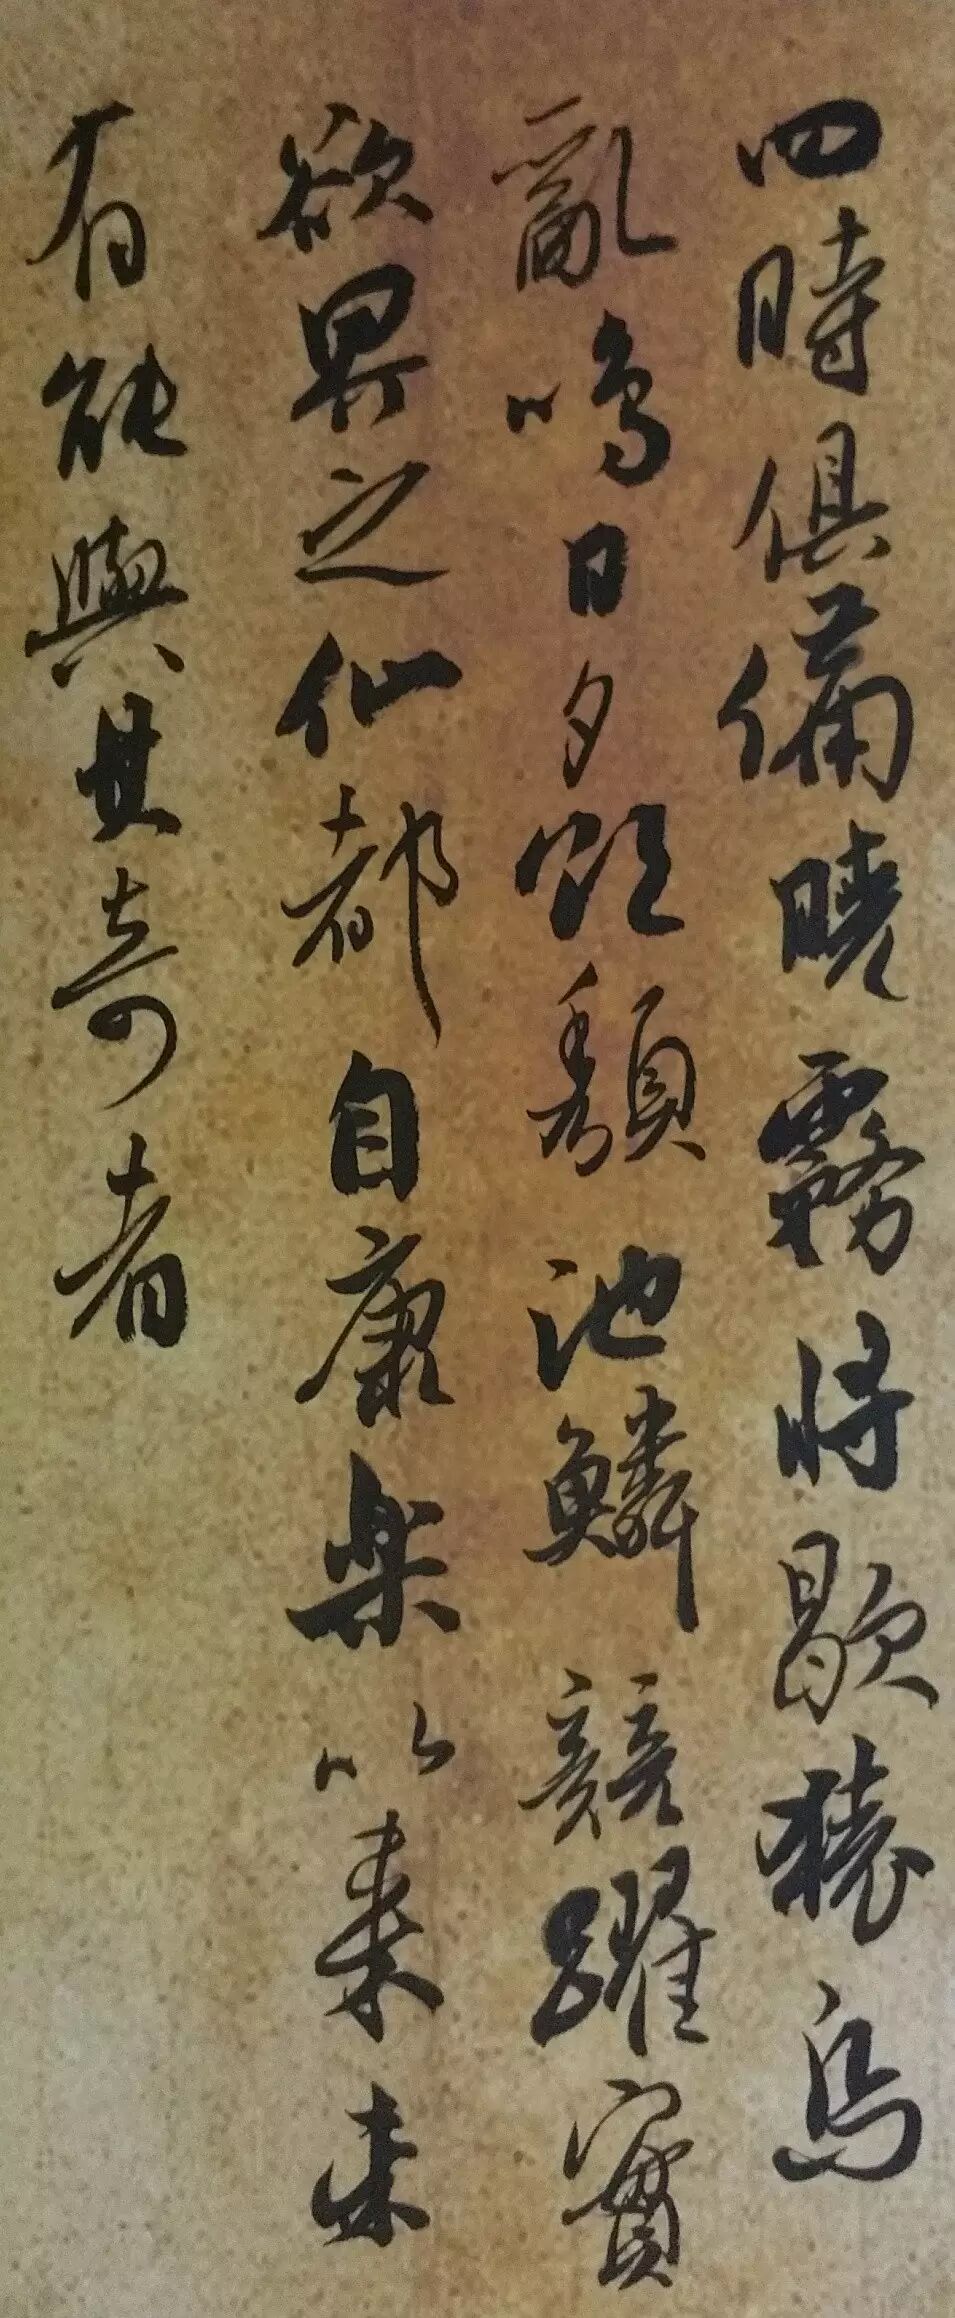 四時俱備曉霧將歇猿鳥
亂鳴日夕欲頹池鱗競躍實
欲界之仙都自康樂以來未
有能與其奇者